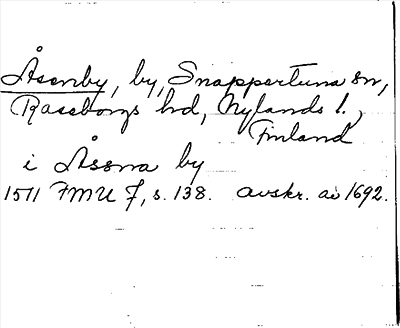 Åsenby, by, Snappertuna sn,
Raseborgs hd, Nylands l.,
Finland
i Åsena by
1511 FMU 7, s. 138. avskr. av 1692.